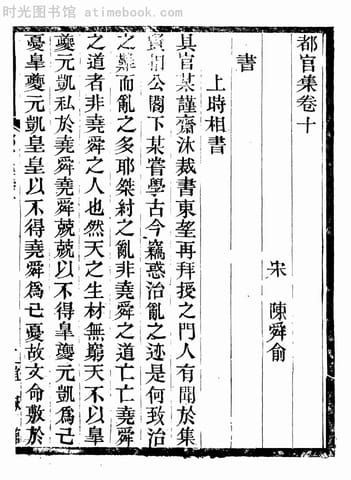 时光图书馆 atimebook.com
都官集卷十
宋 陳舜俞
書
上時相書
具官某謹齋沐裁書東望再拜授之門人有聞於集
賢相公閣下某嘗學古今竊惑治亂之迹是何致治
之難而亂之多耶桀紂之亂非堯舜之道亡亡堯舜
之道者非堯舜之人也然天之生材無窮天不以皐
夔元凱私於堯舜堯舜兢兢以不得皐夔元凱爲己
憂皐夔元凱皇皇以不得堯舜爲己憂故文命敷於